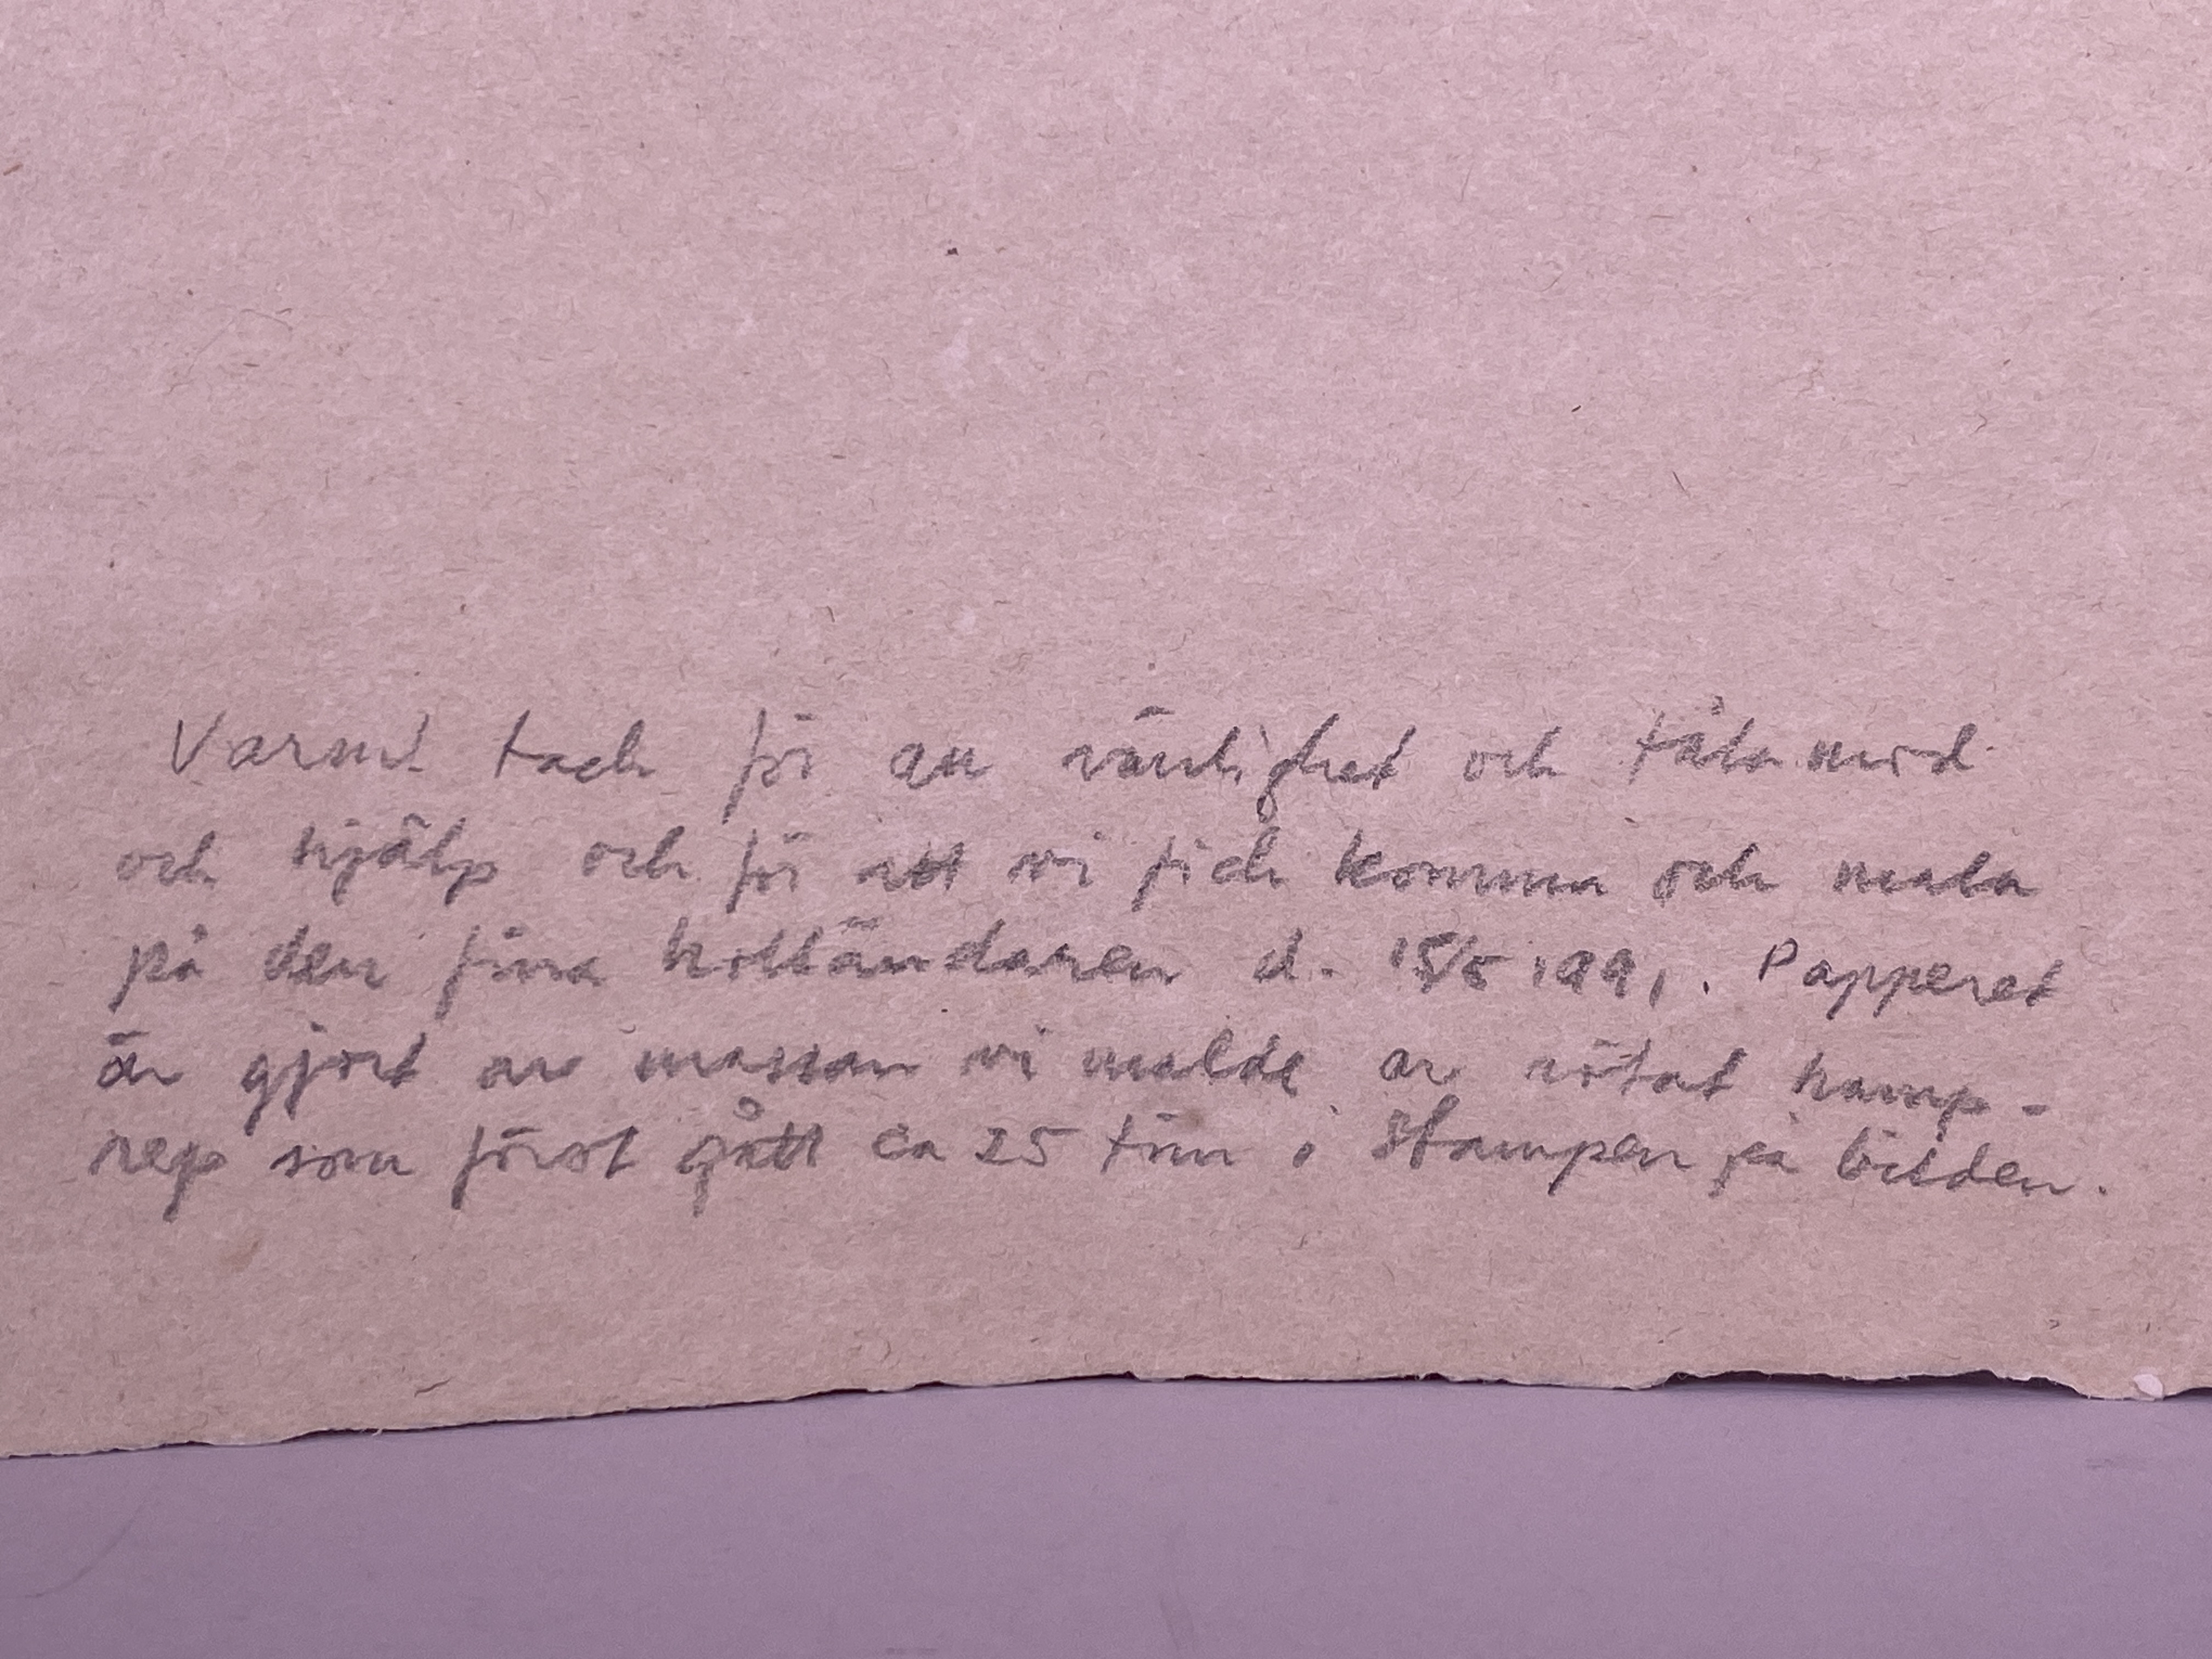 Varmt tack för all vänlighet och tålamod
och hjälp och för att vi fick komma och mala
på den fina holländaren d. 15/5 1991. Papperet
är gjort av massan vi malde av rötat hamp-
rep som först gått ca 25 tim i stampen på bilden.